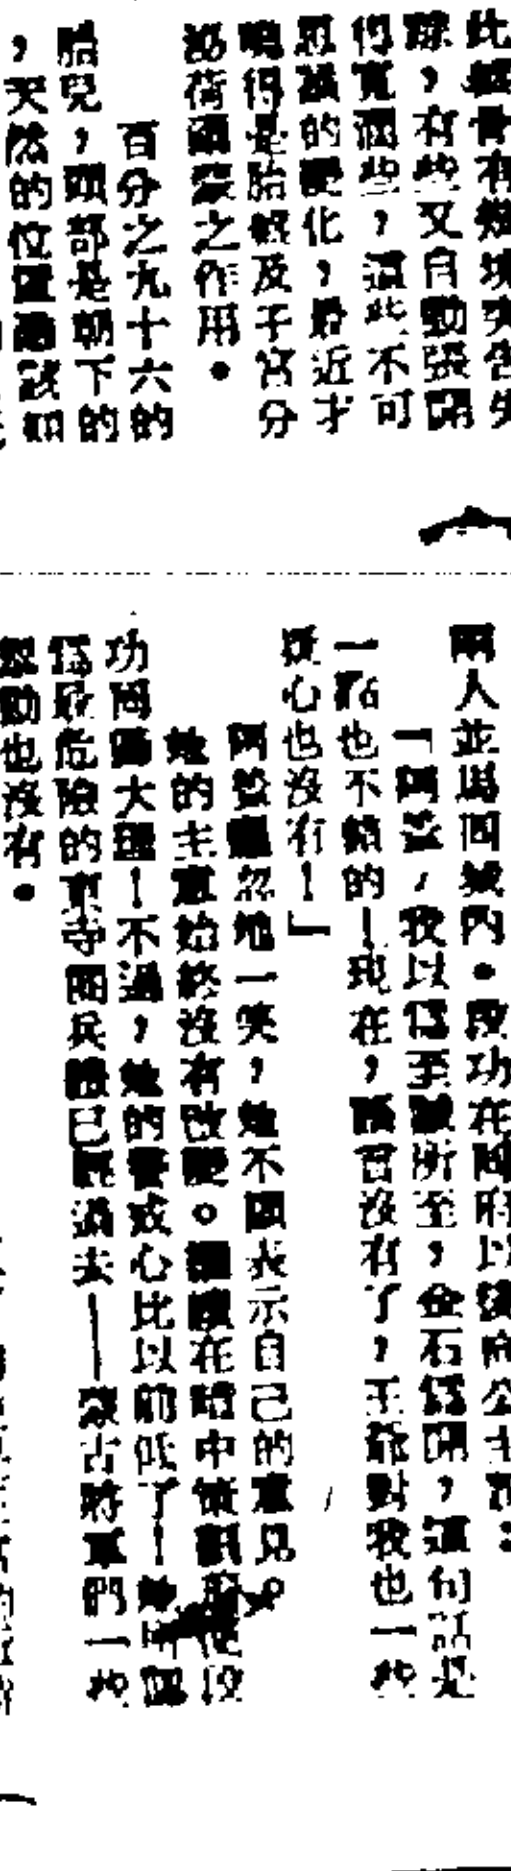 此組骨有幾塊突告失
踪，有些又自動張開
得寬濶些，這些不可
思議的變化，最近才
曉得是胎盤及子宮分
泌荷爾蒙之作用。
百分之九十六的
胎兒，頭部是朝下的
，天然的位置應該如
兩人並馬回城內。段功在閣府以後向公主說：
「阿蓋，我以為至誠所至，金石為開，這句話是
一點也不錯的！現在，謠言沒有了，王爺對我也一些
疑心也沒有！」
阿蓋飄忽地一笑，她不願表示自己的意見。
她的主意始終沒有改變。繼續在暗中策劃着使段
功回歸大理！不過，她的警戒心比以前低了！她所認
為最危險的東寺閱兵禮已經過去——蒙古將軍們一些
舉動也沒有。